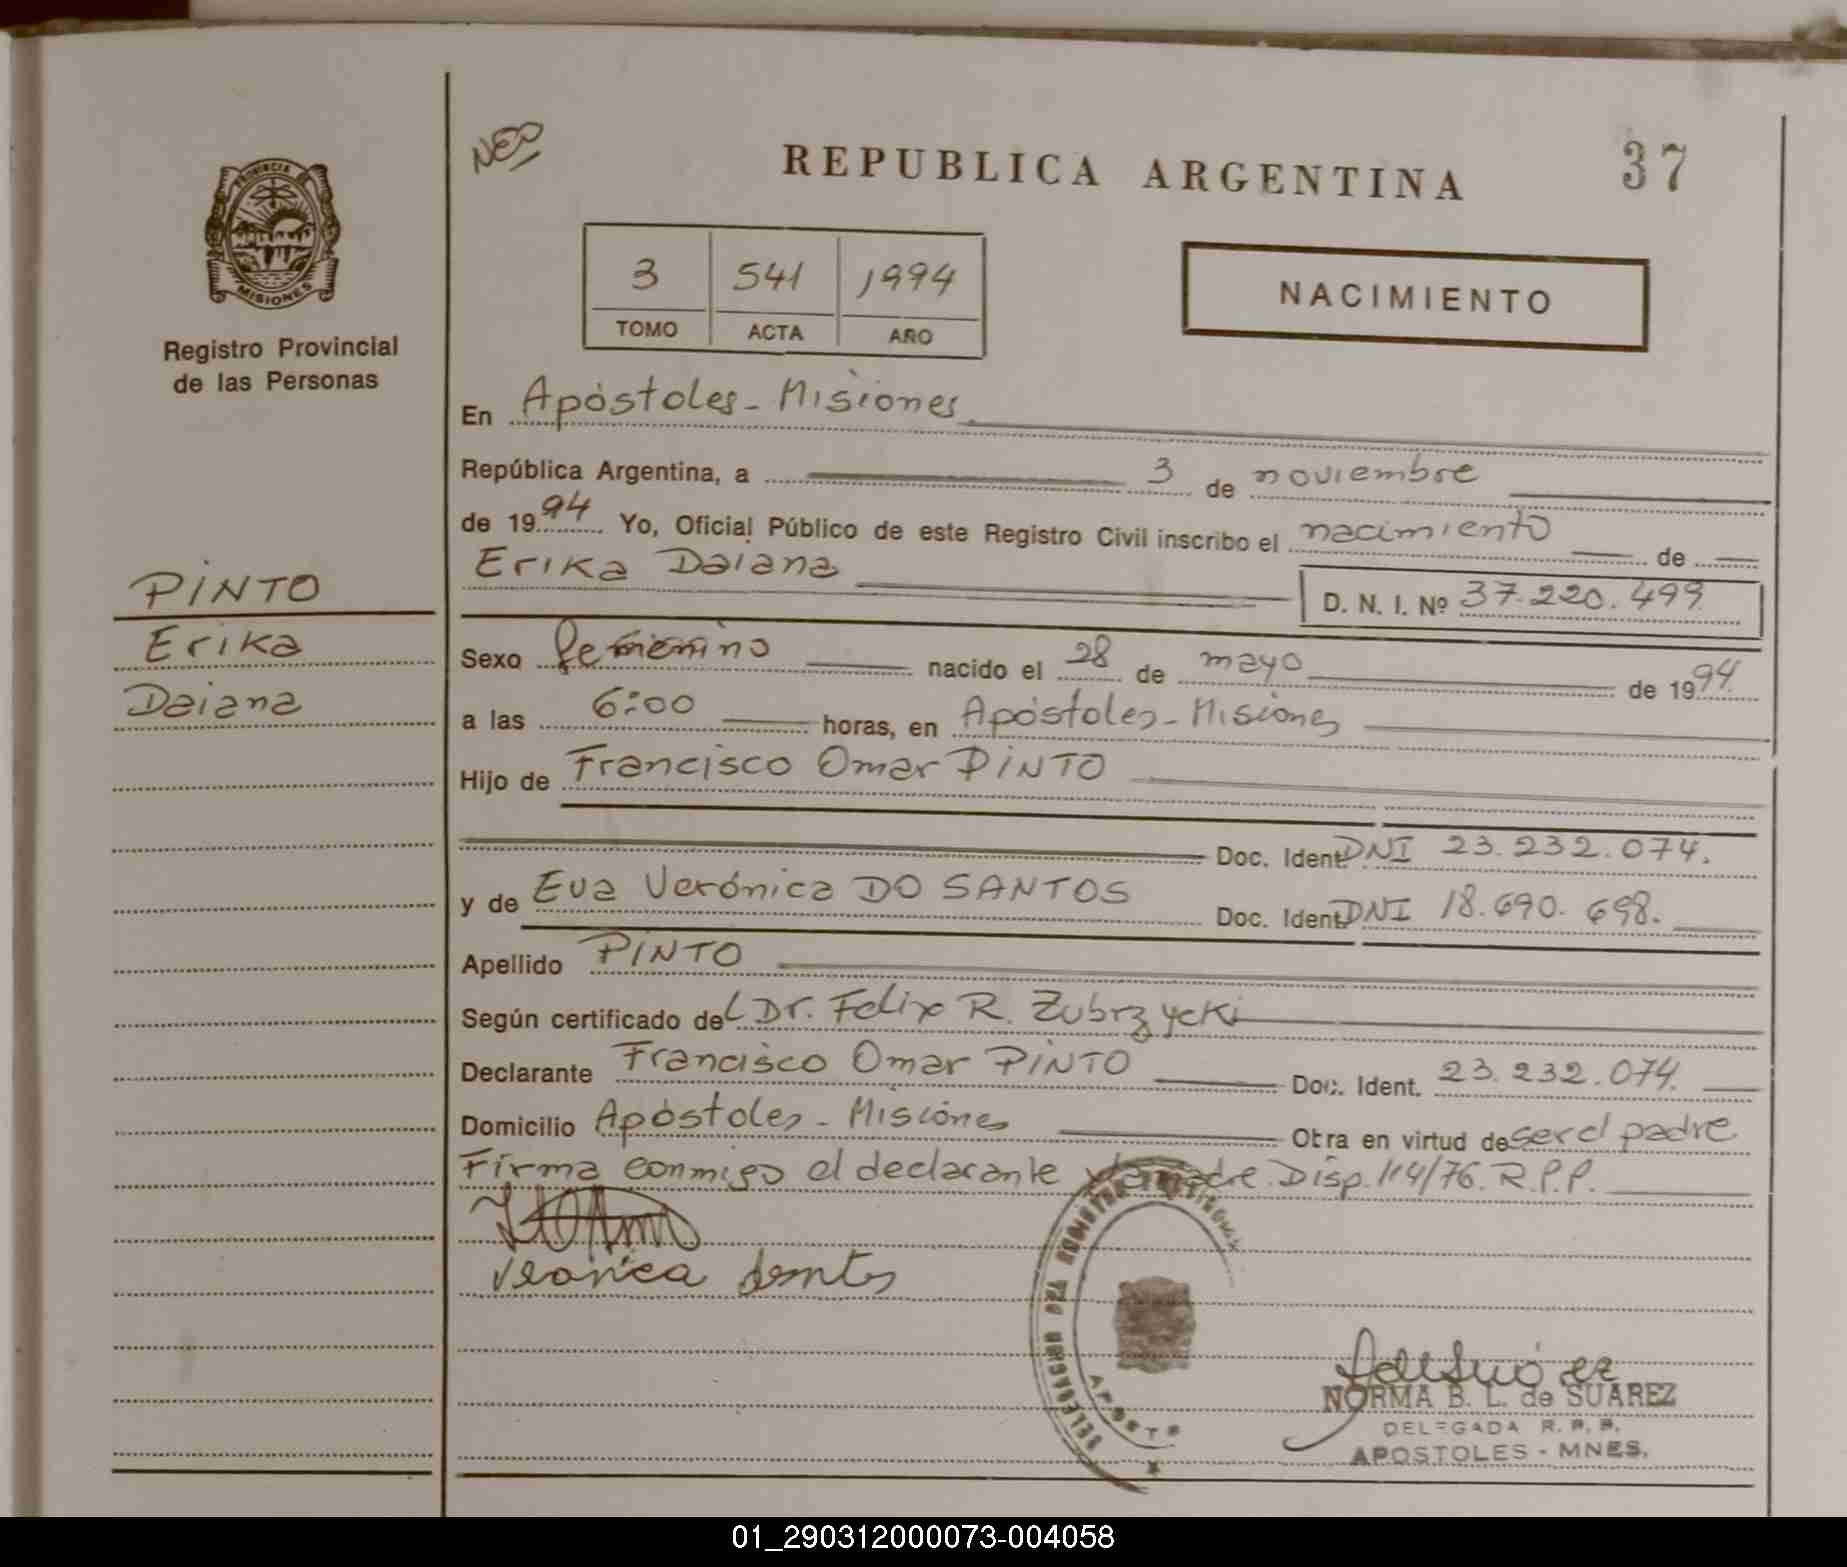 NEO
REPUBLICA ARGENTINA
37
PROVINCIA
MISIONES
Registro Provincial
de las Personas
3 541 1994
TOMO ACTA AÑO
NACIMIENTO
En Apóstoles - Misiones
República Argentina, a 3 de noviembre
de 1994 Yo, Oficial Público de este Registro Civil inscribo el nacimiento de
Erika Daiana D. N. I. Nº 37.220.499
PINTO
Erika
Daiana
Sexo femenino nacido el 28 de mayo de 1994
a las 6:00 horas, en Apóstoles - Misiones
Hijo de Francisco Omar PINTO
Doc. Ident. DNI 23.232.074.
y de Eva Verónica DO SANTOS Doc. Ident. DNI 18.690.698.
Apellido PINTO
Según certificado del Dr. Felix R. Zubrzycki
Declarante Francisco Omar PINTO Doc. Ident. 23.232.074.
Domicilio Apóstoles - Misiones Obra en virtud de ser el padre
Firma conmigo el declarante y la madre. Disp. 114/76. R.P.P.
NORMA B. L. de SUAREZ
DELEGADA R. P. P.
APOSTOLES - MNES.
01_290312000073-004058